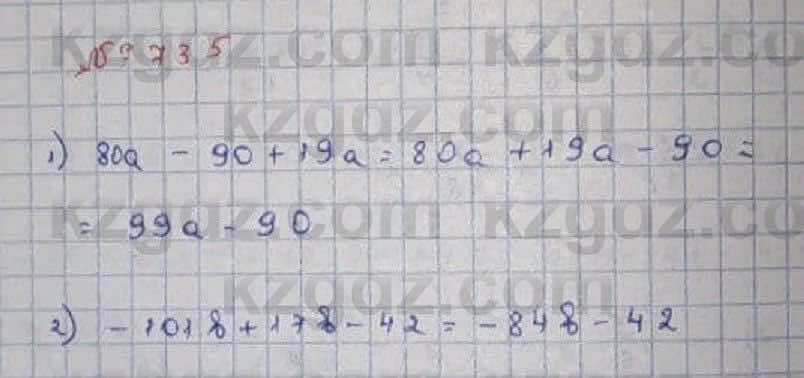 № 735
1) 80a - 90 + 19a = 80a + 19a - 90 =
= 99a - 90
2) - 101b + 17b - 42 = - 84b - 42
kzgdz.com kzgdz.com
kzgdz.com
kzgdz.com kzgdz.co
kzgdz.com